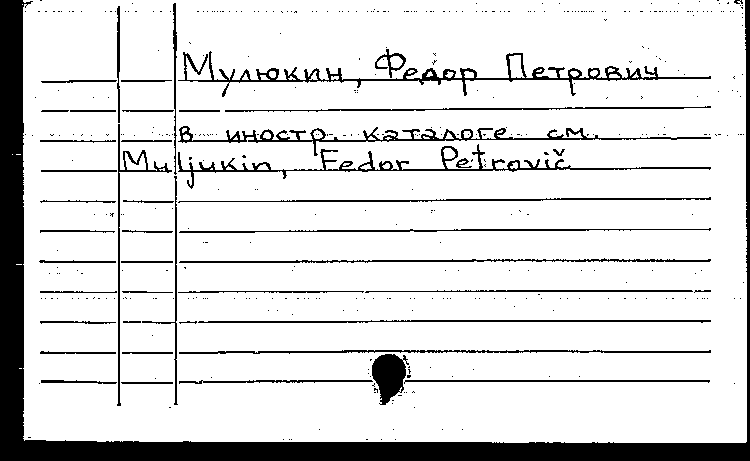 Мулюкин, Федор Петрович
в иностр. каталоге см.
Muljukin, Fedor Petrovič